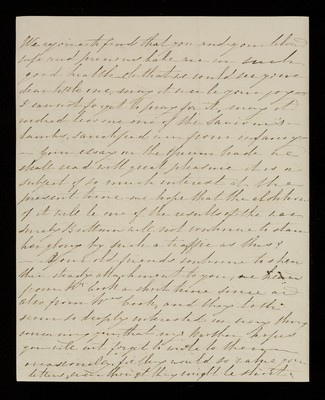 We rejoice to find that you and your beloved
wife and precious babe are in such
good health, oh that we could see your
dear little one, may it crown your joy
I cannot forget to pray for it, may it
indeed become one of the Saviour's
lambs, sanctified from your infancy
Your essay on the Opium trade we
shall read with great pleasure it is a
subject of so much interest at the
present time we hope that the abolition
of it will be one of the results of the war
Surely Britain will not continue to stain
her glory by such a traffic as this &
Your old friends continue to open
their steady attachment to you, we
from Mr. Cook a short time since and
also from Mrs. Cook, and they both
seem so deeply interested in every thing
concerning you that my Mother hopes
you will not forget to write to them
occasionally, for they would so value your
letters, even though they might be short